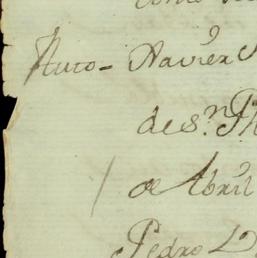 Auto- Xavier
de s.n Ph
de Abril
Pedro L